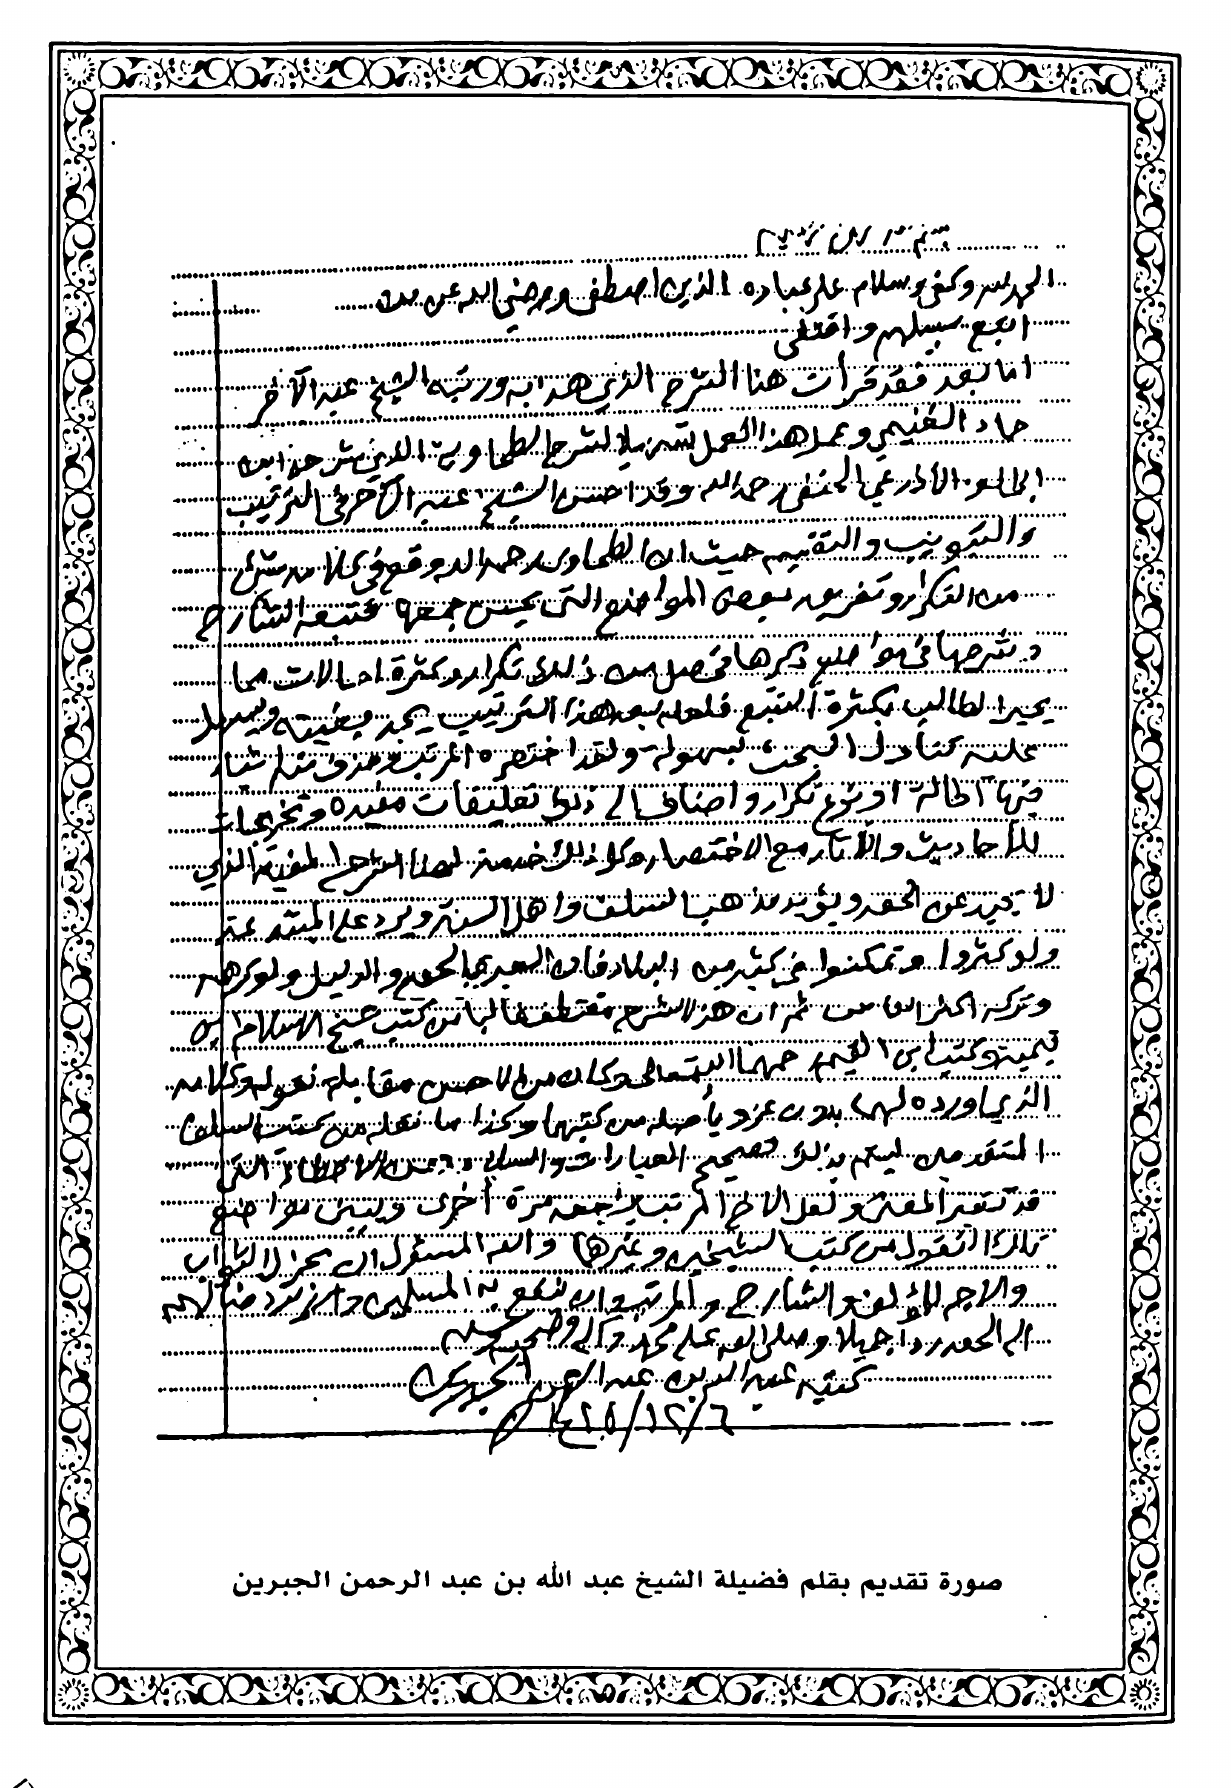 بسم الله الرحمن الرحيم
الحمد لله وكفى وسلام على عباده الذين اصطفى ورضي الله عن من
اتبع سبيلهم واقتفى
اما بعد فقد قرأت هذا الشرح الذي هذبه ورتبه الشيخ عبد الآخر
حماد الغنيمي وعمل هذا العمل تسهيلا لشرح الطحاوية الذي شرحه ابن
ابي العز الأذرعي الحنفي رحمه الله وقد احسن الشيخ عبد الآخر في الترتيب
والتبويب والتقسيم حيث ان الطحاوي رحمه الله وقع في كلامه شئ
من التكرار وتفريق بعض المواضع التي يحسن جمعها فتبعه الشارح
وشرحها في مواضع ذكرها فحصل من ذلك تكرار وكثرة احالات مما
يحير الطالب بكثرة التتبع فلعله بعد هذا الترتيب يجد بغيته ويسهل
عليه تناول البحث بسهولة ولقد اختصره المرتب وحذف
منها اطالة او نوع تكرار واضاف الى ذلك تعليقات مفيدة وتخريجات
للأحاديث والآثار مع الاختصار وكل ذلك خدمة لهذا الشرح المفيد الذي
لا يحيد عن الحق ويؤيد مذهب السلف واهل السنة ويرد على المبتدعة
ولو كثروا وتمكنوا في كثير من البلاد فان العبرة بالحق والدليل ولو كرهه
وتركه اكثر الناس ثم ان هذا الشرح مقتطف غالبا من كتب شيخ الاسلام ابن
تيمية وكتب ابن القيم رحمهما الله تعالى وكان من الاحسن مقابلة نقوله وكلامه
الذي اورده لهما بدون عزو بأصله من كتبهما وكذا ما نقله من كتب السلف
المتقدمين ليتم بذلك تصحيح العبارات والسلامة من الاخطاء التي
قد تغير المعنى ولعل الاخ المرتب يراجعه مرة أخرى ويبين مواضع
تلك النقول من كتب الشيخين وغيرها والله المسئول ان يجزل الثواب
والاجر للمؤلف والشارح والمرتب وان ينفع به المسلمين وان يرد ضالهم
الى الحق ردا جميلا وصلى الله على محمد وآله وصحبه وسلم
كتبه عبد الله بن عبد الرحمن الجبرين
٦/١٢/
صورة تقديم بقلم فضيلة الشيخ عبد الله بن عبد الرحمن الجبرين
٥